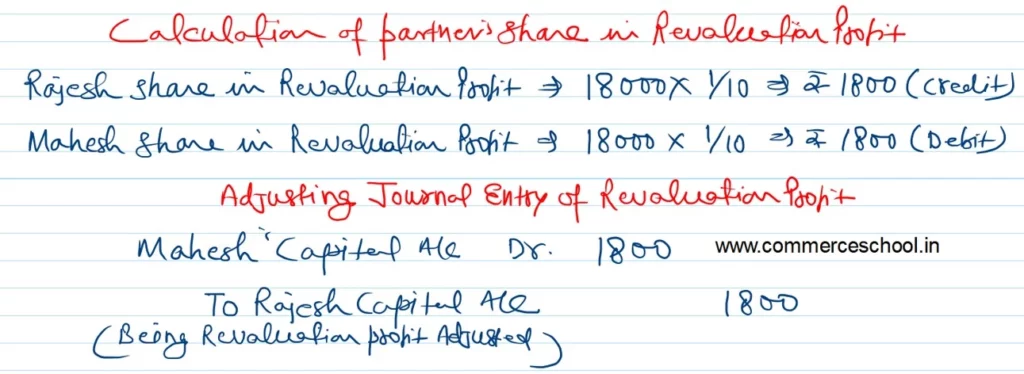 Calculation of partner's share in Revaluation Profit
Rajesh share in Revaluation Profit ⇒ 18000 × 1/10 ⇒ ₹ 1800 (Credit)
Mahesh share in Revaluation Profit ⇒ 18000 × 1/10 ⇒ ₹ 1800 (Debit)
Adjusting Journal Entry of Revaluation Profit
Mahesh's Capital A/c Dr. 1800 www.commerceschool.in
To Rajesh Capital A/c 1800
(Being Revaluation profit Adjusted)